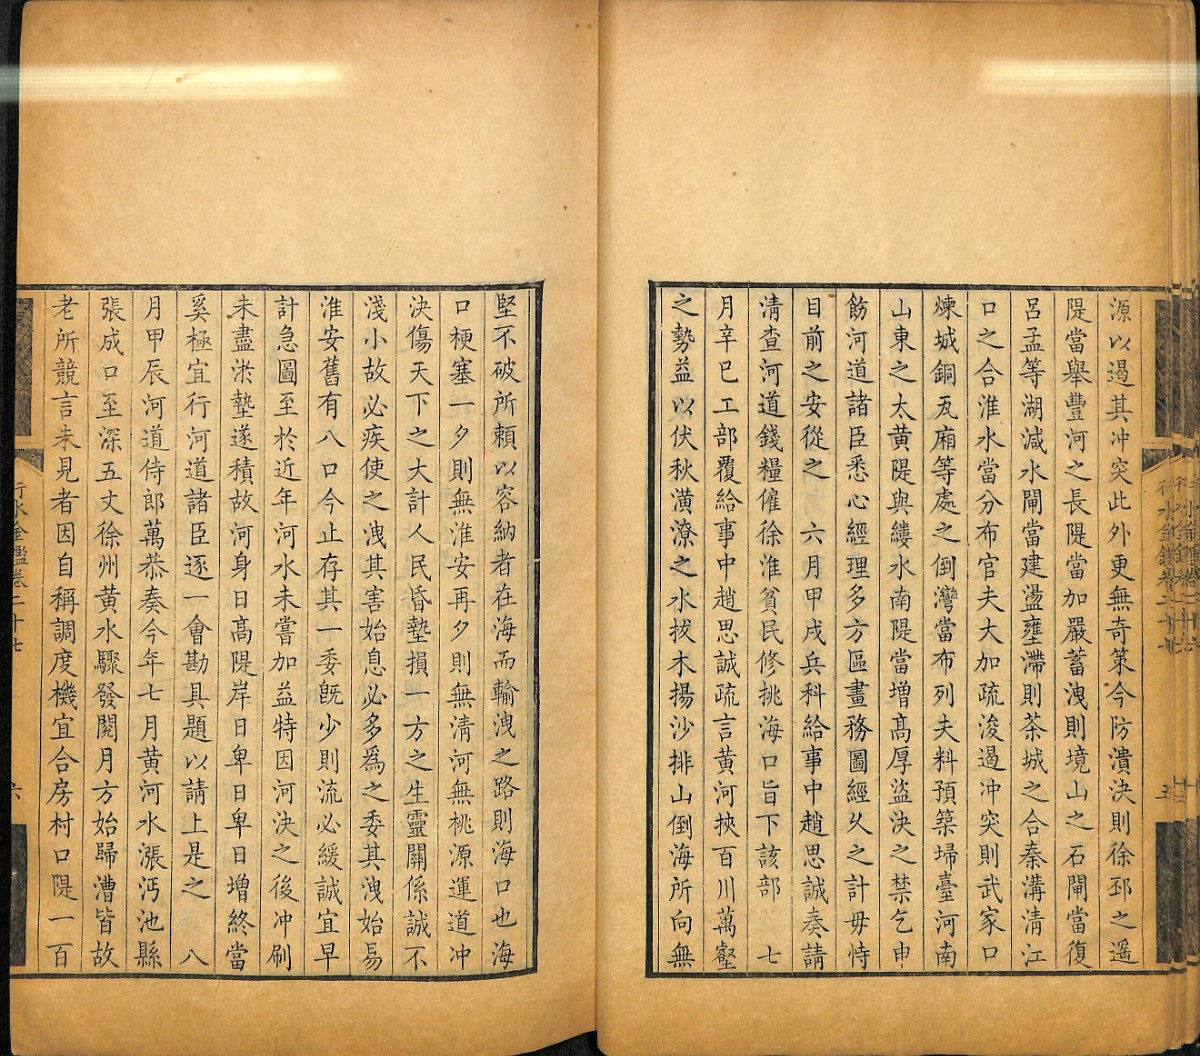 源以遏其冲突此外更無奇策今防潰決則徐邳之遥
隄當舉豐河之長隄當加嚴蓄洩則境山之石閘當復
呂孟等湖減水閘當建盪壅滯則茶城之合秦溝清江
口之合淮水當分布官夫大加疏浚遏冲突則武家口
煉城銅瓦廂等處之倒灣當布列夫料預築埽臺河南
山東之太黄隄與縷水南隄當增高厚盜決之禁乞申
飭河道諸臣悉心經理多方區畫務圖經久之計毋恃
目前之安從之　六月甲戌兵科給事中趙思誠奏請
清查河道錢糧催徐淮貧民修挑海口旨下該部　七
月辛巳工部覆給事中趙思誠疏言黄河挾百川萬壑
之勢益以伏秋潢潦之水拔木揚沙排山倒海所向無
堅不破所頼以容納者在海而輸洩之路則海口也海
口梗塞一夕則無淮安再夕則無清河無桃源運道冲
決傷天下之大計人民昏墊損一方之生靈關係誠不
淺小故必疾使之洩其害始息必多爲之委其洩始易
淮安舊有八口今止存其一委旣少則流必緩誠宜早
計急圖至於近年河水未嘗加益特因河決之後冲刷
未盡淤墊遂積故河身日高隄岸日卑日卑日增終當
奚極宜行河道諸臣逐一會勘具題以請上是之　八
月甲辰河道侍郎萬恭奏今年七月黄河水漲沔池縣
張成口至深五丈徐州黄水驟發閱月方始歸漕皆故
老所競言未見者因自稱調度機宜合房村口隄一百
行水金鑑卷二十七
六